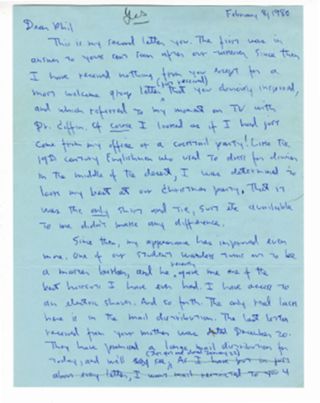 Yes
February 8, 1980
Dear Phil
This is my second letter you. The first was in
answer to yours sent soon after our Since then
I have received nothing from you except for a
(just received)
most welcome group letter that you obviously inspired,
and which referred to my moment on TV with
Dr. Coffin. Of course I looked as if I had just
come from my office or a cocktail party! Like the
19th century Englishmen who used to dress for dinner
in the middle of the desert, I was determined to
look my best at our Christmas party, That it
was the only shirt and tie, suit etc available
to me didn't make any difference.
Since then, my appearance has improved even
more. One of our student wardens turns out to be
a master barber, and he, gave me one of the
best haircuts I have ever had. I have access to
an electric shaver. And so forth. The only real lack
here is in the mail distribution. The last letter
received from your mother was dated December 20.
They have promised a large mail distribution for
today, and we'll see. As I have put in just
about every letter, I was most to you 4